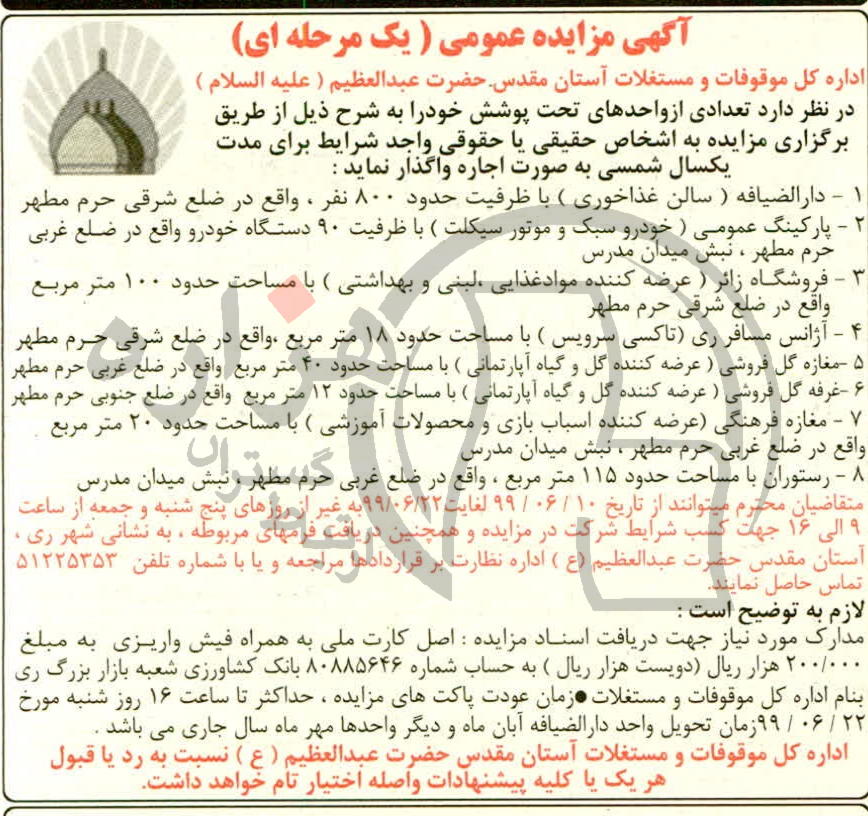 آگهی مزایده عمومی ( یک مرحله ای)
اداره کل موقوفات و مستغلات آستان مقدس حضرت عبدالعظیم ( علیه السلام )
در نظر دارد تعدادی ازواحدهای تحت پوشش خودرا به شرح ذیل از طریق
برگزاری مزایده به اشخاص حقیقی یا حقوقی واجد شرایط برای مدت
یکسال شمسی به صورت اجاره واگذار نماید :
۱ - دارالضیافه ( سالن غذاخوری ) با ظرفیت حدود ۸۰۰ نفر ، واقع در ضلع شرقی حرم مطهر
۲ - پارکینگ عمومی ( خودرو سبک و موتور سیکلت ) با ظرفیت ۹۰ دستگاه خودرو واقع در ضلع غربی
حرم مطهر ، نبش میدان مدرس
۳ - فروشگاه زائر ( عرضه کننده موادغذایی ،لبنی و بهداشتی ) با مساحت حدود ۱۰۰ متر مربع
واقع در ضلع شرقی حرم مطهر
۴ - آژانس مسافر ری (تاکسی سرویس ) با مساحت حدود ۱۸ متر مربع ،واقع در ضلع شرقی حرم مطهر
۵ -مغازه گل فروشی ( عرضه کننده گل و گیاه آپارتمانی ) با مساحت حدود ۴۰ متر مربع واقع در ضلع غربی حرم مطهر
۶ -غرفه گل فروشی ( عرضه کننده گل و گیاه آپارتمانی ) با مساحت حدود ۱۲ متر مربع واقع در ضلع جنوبی حرم مطهر
۷ - مغازه فرهنگی (عرضه کننده اسباب بازی و محصولات آموزشی ) با مساحت حدود ۲۰ متر مربع
واقع در ضلع غربی حرم مطهر ، نبش میدان مدرس
۸ - رستوران با مساحت حدود ۱۱۵ متر مربع ، واقع در ضلع غربی حرم مطهر، نبش میدان مدرس
متقاضیان محترم میتوانند از تاریخ ۱۰ / ۰۶ / ۹۹ لغایت۹۹/۰۶/۲۲به غیر از روزهای پنج شنبه و جمعه از ساعت
۹ الی ۱۶ جهت کسب شرایط شرکت در مزایده و همچنین دریافت فرمهای مربوطه ، به نشانی شهر ری ،
آستان مقدس حضرت عبدالعظیم (ع ) اداره نظارت بر قراردادها مراجعه و یا با شماره تلفن ۵۱۲۲۵۳۵۳
تماس حاصل نمایند.
لازم به توضیح است :
مدارک مورد نیاز جهت دریافت اسناد مزایده : اصل کارت ملی به همراه فیش واریزی به مبلغ
۲۰۰/۰۰۰ هزار ریال (دویست هزار ریال ) به حساب شماره ۸۰۸۸۵۶۴۶ بانک کشاورزی شعبه بازار بزرگ ری
بنام اداره کل موقوفات و مستغلات ●زمان عودت پاکت های مزایده ، حداکثر تا ساعت ۱۶ روز شنبه مورخ
۲۲ / ۰۶ / ۹۹زمان تحویل واحد دارالضیافه آبان ماه و دیگر واحدها مهر ماه سال جاری می باشد .
اداره کل موقوفات و مستغلات آستان مقدس حضرت عبدالعظیم ( ع ) نسبت به رد یا قبول
هر یک یا کلیه پیشنهادات واصله اختیار تام خواهد داشت.
هزاره
گستران